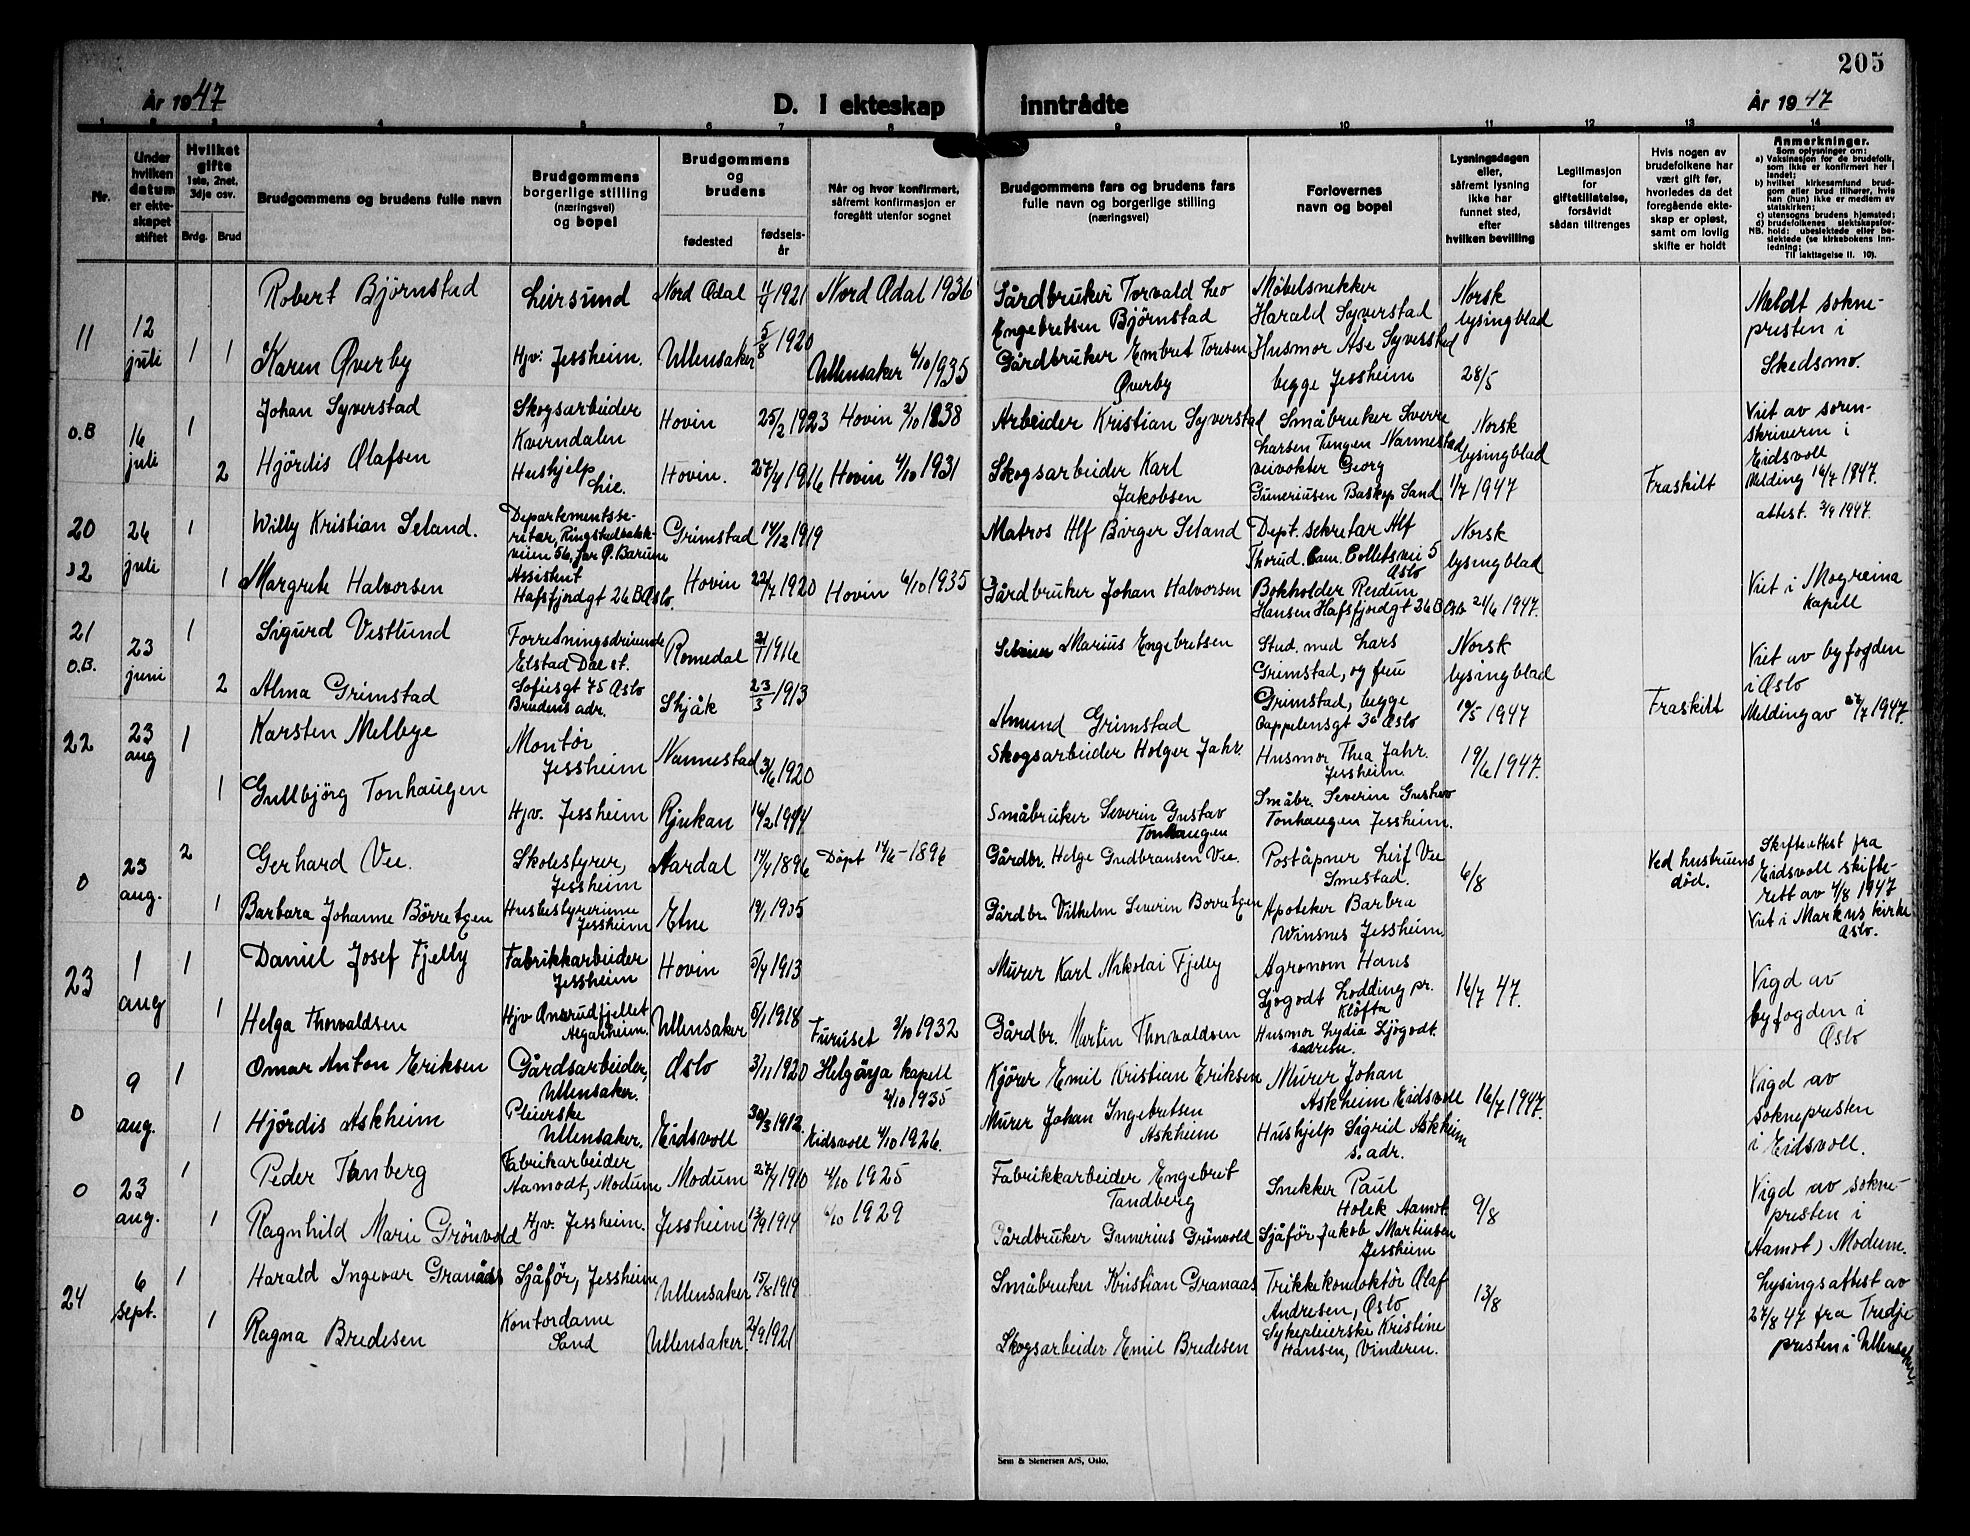 205
År 1947
D. I ekteskap inntrådte
År 1947
1 2 3 4 5 6 7 8 9 10 11 12 13 14
Nr.
Under hvilken datum er ekteskapet stiftet
Hvilket gifte
1ste, 2net, 3dje osv.
Brdg. Brud
Brudgommens og brudens fulle navn
Brudgommens borgerlige stilling (næringsvei) og bopel
Brudgommens og brudens
fødested
fødselsår
Når og hvor konfirmert, såfremt konfirmasjon er foregått utenfor sognet
Brudgommens fars og brudens fars fulle navn og borgerlige stilling (næringsvei)
Forlovernes navn og bopel
Lysningsdagen eller, såfremt lysning ikke har funnet sted, efter hvilken bevilling
Legitimasjon for giftetillatelse, forsåvidt sådan tiltrenges
Hvis nogen av brudefolkene har vært gift før, hvorledes da det foregående ekteskap er opløst, samt om lovlig skifte er holdt
Anmerkninger.
Som oplysninger om:
a) Vaksinasjon for de brudefolk, som ikke er konfirmert her i landet;
b) hvilket kirkesamfund brudgom eller brud tilhører, hvis han (hun) ikke er medlem av statskirken;
c) utensogns brudens hjemsted;
d) brudefolkenes slektskapsforhold: ubeslektede eller beslektede (se kirkebokens innledning;
NB.
Til iakttagelse II. 10).
11
12 juli
1
Robert Bjørnstad
Leirsund
Nord Odal
1921
Nord Odal 1936
Gårdbruker Torvald Leo Engebretsen Bjørnstad
Møbelsnekker Harald Syverstad
Norsk lysingblad
Meldt sokne-
presten i
Skedsmo.
1
Karen Øverby
Hjv. Jessheim.
Ullensaker
5/8 1920
Ullensaker 4/10 1935
Gårdbruker Embret Toresen Øverby
Husmor Åse Syverstad
begge Jessheim
28/5
o.B
16 juli
1
Johan Syverstad
Skogsarbeider
Kverndalen
Hovin
25/2 1923
Hovin 2/10 1938
Arbeider Kristian Syverstad
Småbruker Sverre
Larsen Tengen Nannestad
Norsk lysingblad
Viet av soren-
skriveren i
Eidsvoll
Melding 16/7 1947.
attest. 2/9 1947.
2
Hjördis Olafsen
Hushjelp
Lie.
Hovin.
27/4 1916
Hovin 4/10 1931
Skogsarbeider Karl
Jakobsen
veivokter Georg
Guneriusen Baskop Sand
1/7 1947
Fraskilt
20
26 juli
1
Willy Kristian Seland.
Departementsse-
retær,
veien 56, Jar Ø. Bærum
Grimstad
14/12 1919
Matros Alf Birger Seland
Dept. sekretær Alf
Thorud. Cam. Colletsvei 5
Oslo
Norsk lysingblad
Viet i Mogreina
kapell
1
Margrete Halvorsen
Assistent
Hafsfjordgt 26 B Oslo.
Hovin
22/7 1920
Hovin 6/10 1935
Gårdbruker Johan Halvorsen
Bokholder Reidun
Hansen Hafsfjordgt 36 B Oslo
24/6 1947.
21
o.B.
23 juni
1
Sigurd Vestlund
Forretningsdrivende
Elstad Dal st.
Romedal
1916
Marius Engebretsen
Stud. med Lars
Grimstad, og fru
Norsk lysingblad
Viet av byfogden
i Oslo
2
Alma Grimstad
Sofiesgt 75 Oslo
Brudens adr.
Skjåk
23/3 1913
Amund Grimstad
Grimstad, begge
Cappelensgt 3a Oslo
19/5 1947
Fraskilt
Melding av 1947.
22
23 aug
1
Karsten Melbye
Montör
Jessheim
Nannestad
3/6 1920
Skogsarbeider Holger Jahr.
Husmor Thea Jahr.
Jessheim
19/6 1947.
1
Gullbjörg Tonhaugen
Hjv. Jessheim
Rjukan
Småbruker Severin Gustav
Tonhaugen
Småbr. Severin Gustav
Tonhaugen Jessheim.
0
23 aug.
2
Gerhard Vee.
Skolestyrer,
Jessheim
Aardal
14/4 1896
Döpt 14/6-1896
Gårdbr. Helge Gudbransen Vee.
Poståpner Leif Vee
Smestad.
6/8
Ved hustruens
död.
Skifteattest fra
Eidsvoll skifte-
rett av 4/8 1947
Viet i Markus kirke
Oslo.
1
Barbara Johanne Börretzen
Husbestyrerinne
Jessheim
Etne
19/1 1905
Gårdbr. Vilhelm Severin Borretzen
Apoteker Barbra
Winsnes Jessheim.
23
1 aug
1
Daniel Josef Fjelly
Fabrikkarbeider
Jessheim
Hovin
5/4 1913
Murer Karl Nikolai Fjelly
Agronom Hans
Ljøgodt Lodding pr.
Kløfta
16/7 47.
Vigd av
byfogden i
Oslo
1
Helga Thorvaldsen
Hjv Ansrudfjellet
Algarheim.
Ullensaker
5/1 1918
Furuset 2/10 1932
Gårdbr. Martin Thorvaldsen
Husmor Lydia Ljögodt.
0
9 aug.
1
Omar Anton Eriksen
Gårdsarbeider,
Ullensaker.
Oslo
3/11 1920
Helgøya kapell
2/10 1935
Kjörer Emil Kristian Eriksen
Murer Johan
Askheim Eidsvoll
16/7 1947.
Vigd av
soknepresten
i Eidsvoll.
1
Hjördis Askheim
Pleierske
Ullensaker.
Eidsvoll
30/3 1912
Eidsvoll 4/10 1926.
Murer Johan Ingebretsen
Askheim
Hushjelp Sigrid Askheim
s. adr.
0
23 aug.
1
Peder Tanberg
Fabrikarbeider
Aamodt, Modum
Modum
27/4 1910
4/10 1925
Fabrikkarbeider Engebret
Tandberg
Snekker Paul
Holek Aamot
9/8
Vigd av sokne-
presten i
(Aamot) Modum.
1
Ragnhild Marie Grönvold
Hjv. Jessheim.
Jessheim
13/9 1914
6/10 1929
Gårdbruker Gunerius Grönvold
Sjåför Jakob Martinsen
Jessheim
24
6 sept.
1
Harald Ingevar Granaas
Sjåför, Jessheim
Ullensaker
15/8 1919
Småbruker Kristian Granaas
Trikkekonduktör Olaf
Andresen, Oslo
13/8
Lysingsattest av
27/8 47 fra Tredje
presten i Ullensaker.
1
Ragna Bredesen
Kontordame
Sand
Ullensaker.
2/9 1921
Skogsarbeider Emil Bredesen
Sykepleierske Kristine
Hansen, Vinderen.
Sem & Stenersen A/S, Oslo.